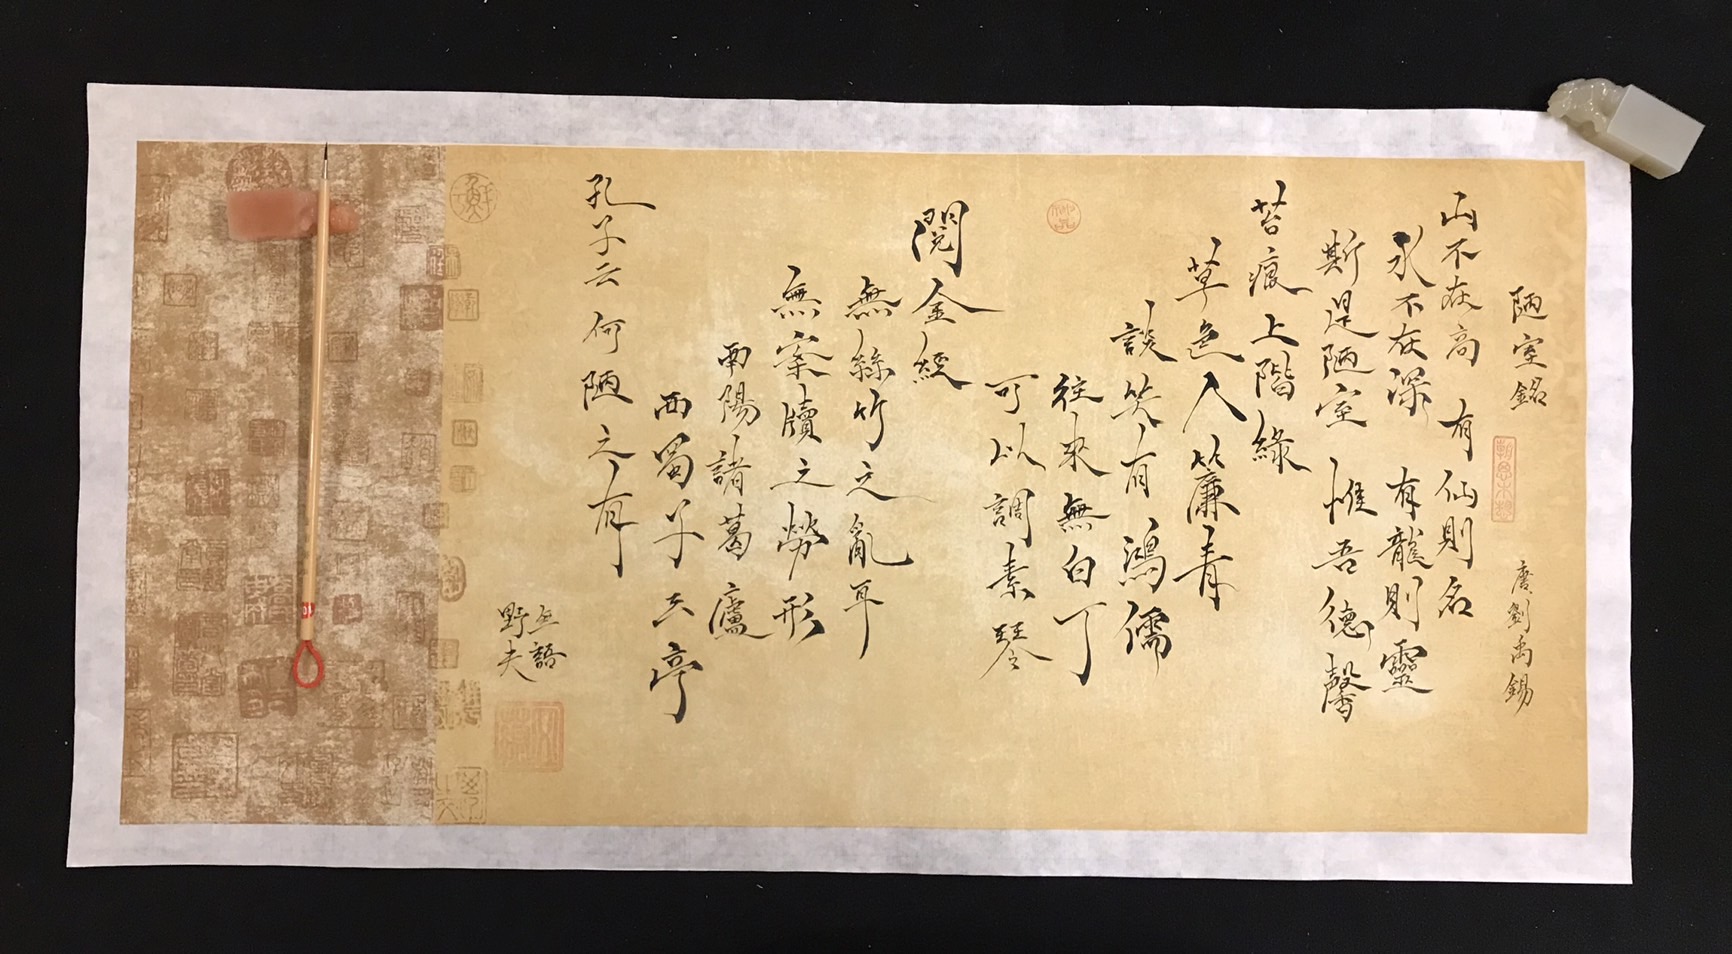 陋室銘
唐劉禹錫
山不在高有仙則名
水不在深有龍則靈
斯是陋室惟吾德馨
苔痕上階綠
草色入簾青
談笑有鴻儒
往來無白丁
可以調素琴
閱金經
無絲竹之亂耳
無案牘之勞形
南陽諸葛廬
西蜀子云亭
孔子云何陋之有
無語
野夫